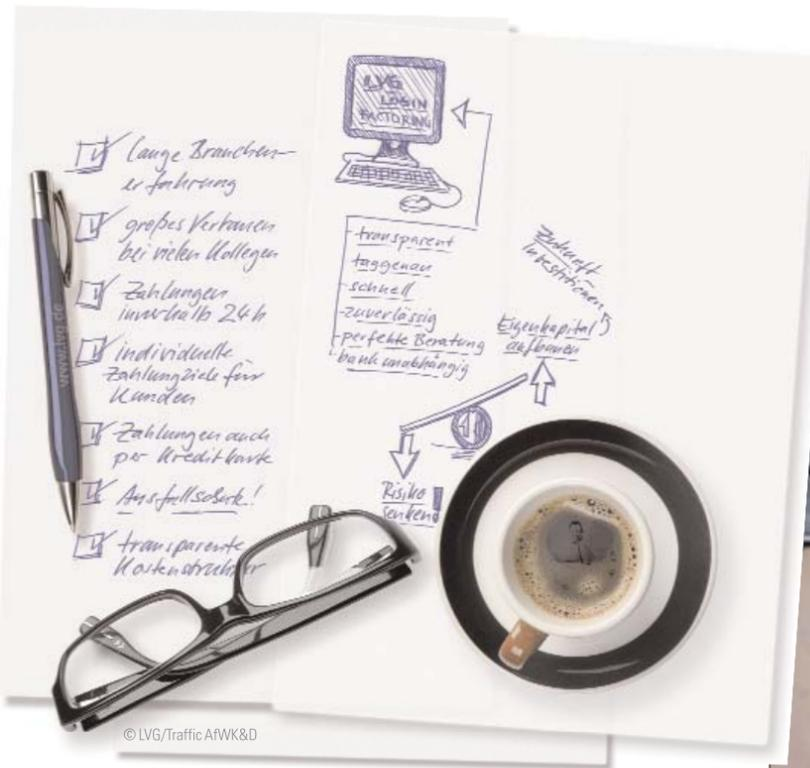 lange Branchen-
erfahrung
großes Vertrauen
bei vielen Kollegen
Zahlungen
innerhalb 24 h
individuelle
Zahlungziele für
Kunden
Zahlungen auch
per Kreditkarte
Ausfallschutz!
transparente
Kostenstruktur
LVG
LOGIN
FACTORING
transparent
taggenau
schnell
zuverlässig
perfekte Beratung
bankunabhängig
Zukunft
Investitionen
Eigenkapital
aufbauen
Risiko
senken!
www.lvg.de
© LVG/Traffic AfWK&D